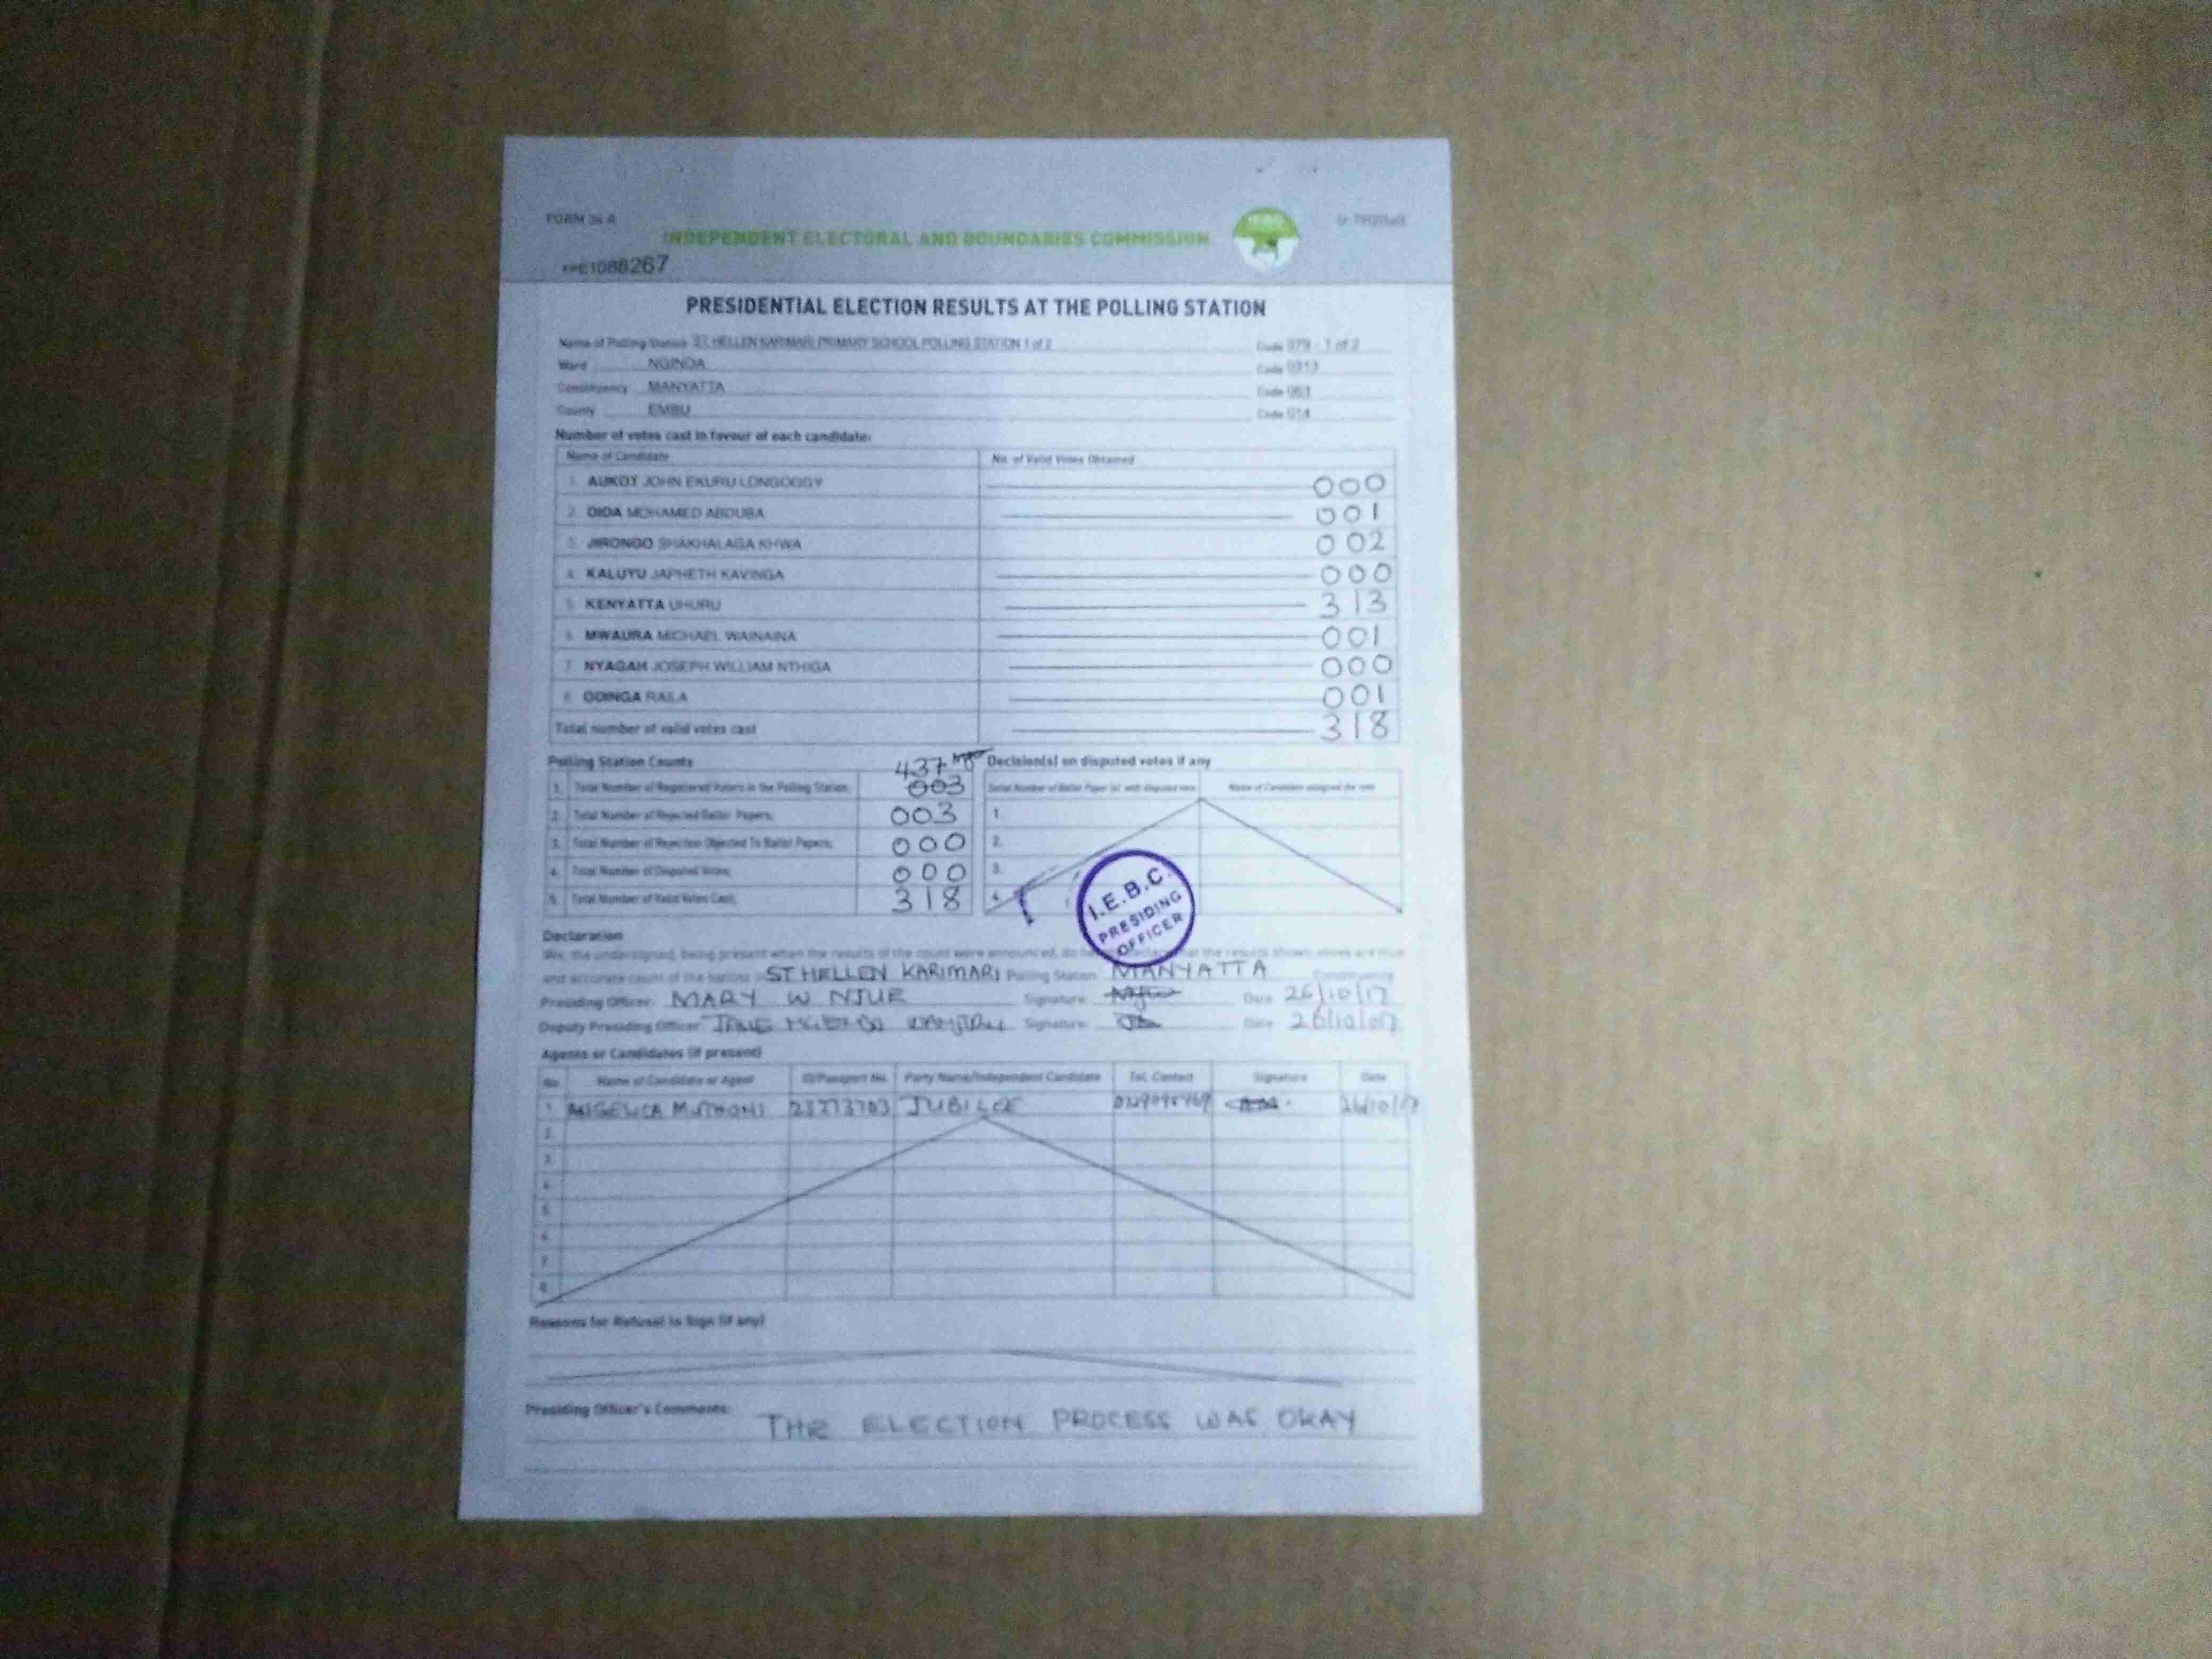 FORM 34 A
INDEPENDENT ELECTORAL AND BOUNDARIES COMMISSION
1088267
PRESIDENTIAL ELECTION RESULTS AT THE POLLING STATION
Name of Polling Station ST. HELLEN KARIMARI PRIMARY SCHOOL POLLING STATION 1 of 2 Code 079 - 1 of 2
Ward NGINDA Code 0313
Constituency MANYATTA Code 063
County EMBU Code 014
Number of votes cast in favour of each candidate:
Name of Candidate No. of Valid Votes Obtained
1. AUKOT JOHN EKURU LONGOGGY 000
2. DIDA MOHAMED ABDUBA 001
3. JIRONGO SHAKHALAGA KHWA 002
4. KALUYU JAPHETH KAVINGA 000
5. KENYATTA UHURU 313
6. MWAURA MICHAEL WAINAINA 001
7. NYAGAH JOSEPH WILLIAM NTHIGA 000
8. ODINGA RAILA 001
Total number of valid votes cast 318
Polling Station Counts
437
1. Total Number of Registered Voters in the Polling Station; 003
2. Total Number of Rejected Ballot Papers; 003
3. Total Number of Rejection Objected To Ballot Papers; 000
4. Total Number of Disputed Votes; 000
5. Total Number of Valid Votes Cast; 318
Decision(s) on disputed votes if any
Serial Number of Ballot Paper (s) with disputed vote Name of Candidate assigned the vote
1.
2.
3.
4.
I.E.B.C.
PRESIDING
OFFICER
Declaration
We, the undersigned, being present when the results of the count were announced, do that the results shown above are true
and accurate count of the ballots ST HELLEN KARIMARI Polling Station MANYATTA Constituency
Presiding Officer: MARY W NJUE Signature Date 26/10/17
Deputy Presiding Officer: Signature Date 26/10/017
Agents or Candidates (if present)
No. Name of Candidate or Agent ID/Passport No. Party Name/Independent Candidate Tel. Contact Signature Date
1. MUTHONI JUBILEE 26/10/17
2.
3.
4.
5.
6.
7.
8.
Reasons for Refusal to Sign (if any)
Presiding Officer's Comments: THE ELECTION PROCESS WAS OKAY